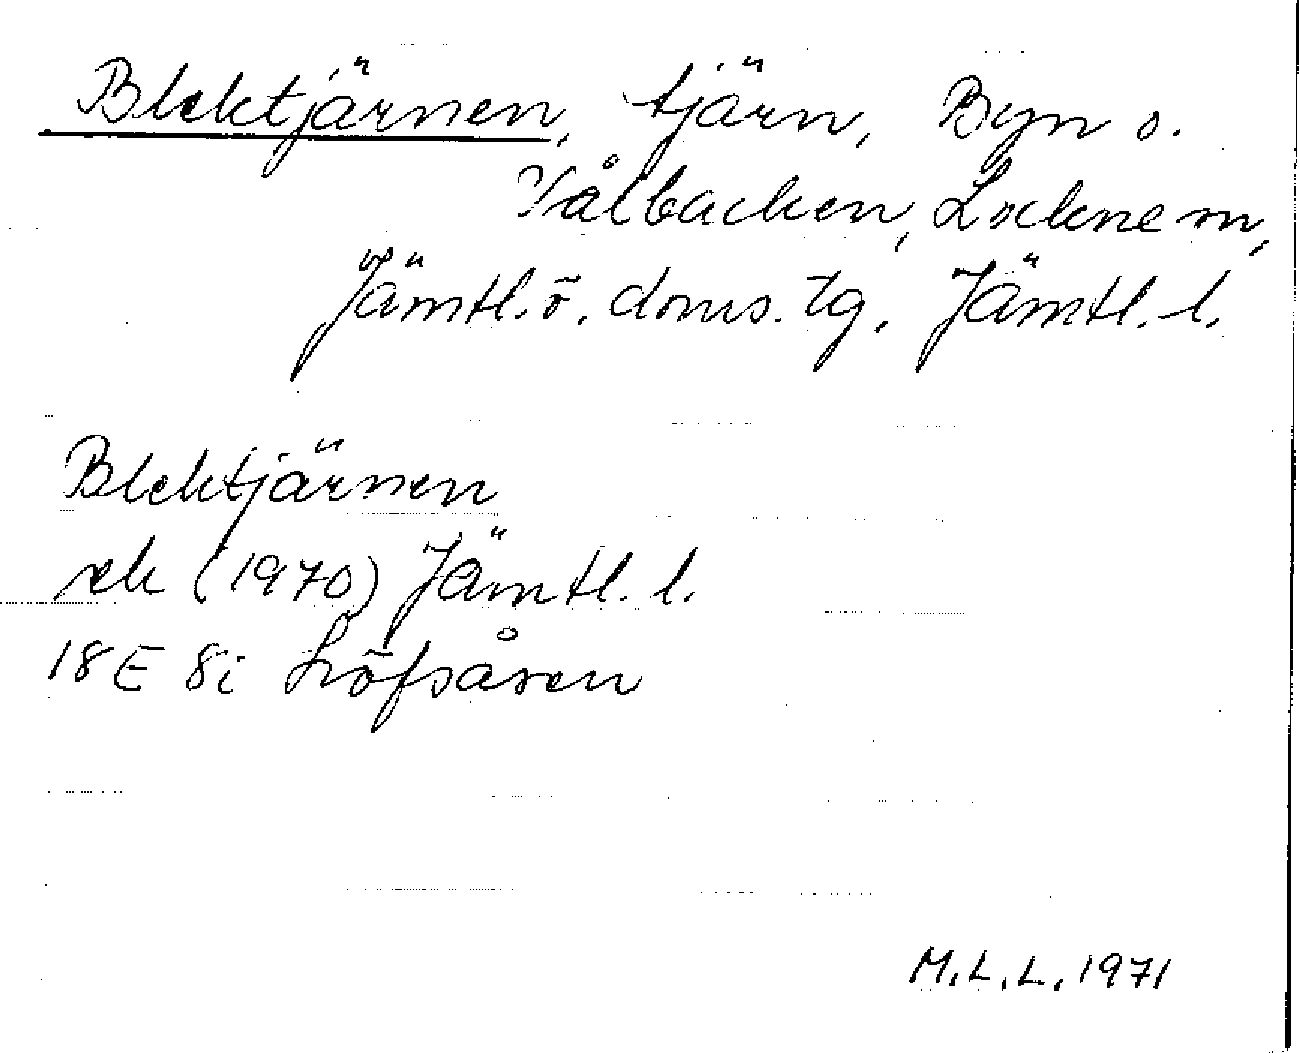 Blektjärnen, tjärn, Byn o.
Vålbacken, Lockne sn,
Jämtl. ö. doms. tg, Jämtl. l.
Blektjärnen
ek (1970) Jämtl. l.
18E 8i Löfsåsen
M.L.L. 1971